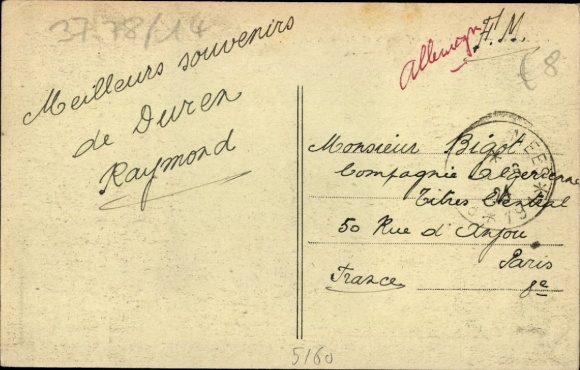 37.78/14
Meilleurs souvenirs
de Duren
Raymond
Allemagne
F.M.
€8
Monsieur Bigot
Compagnie Algerienne
Titres Central
50 Rue d'Anjou
Paris
8e
France
5/60